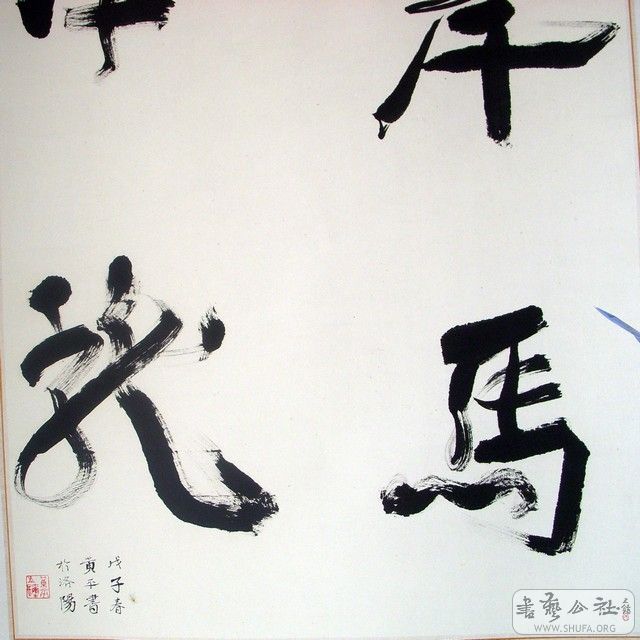 馬
龍
戊子春
黄平書
於洛陽
書藝公社
WWW.SHUFA.ORG